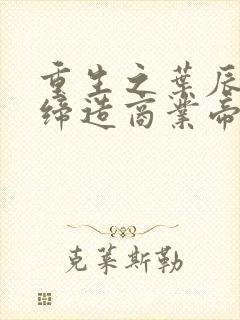 重生之叶辰
缔造商业帝
克莱斯勒